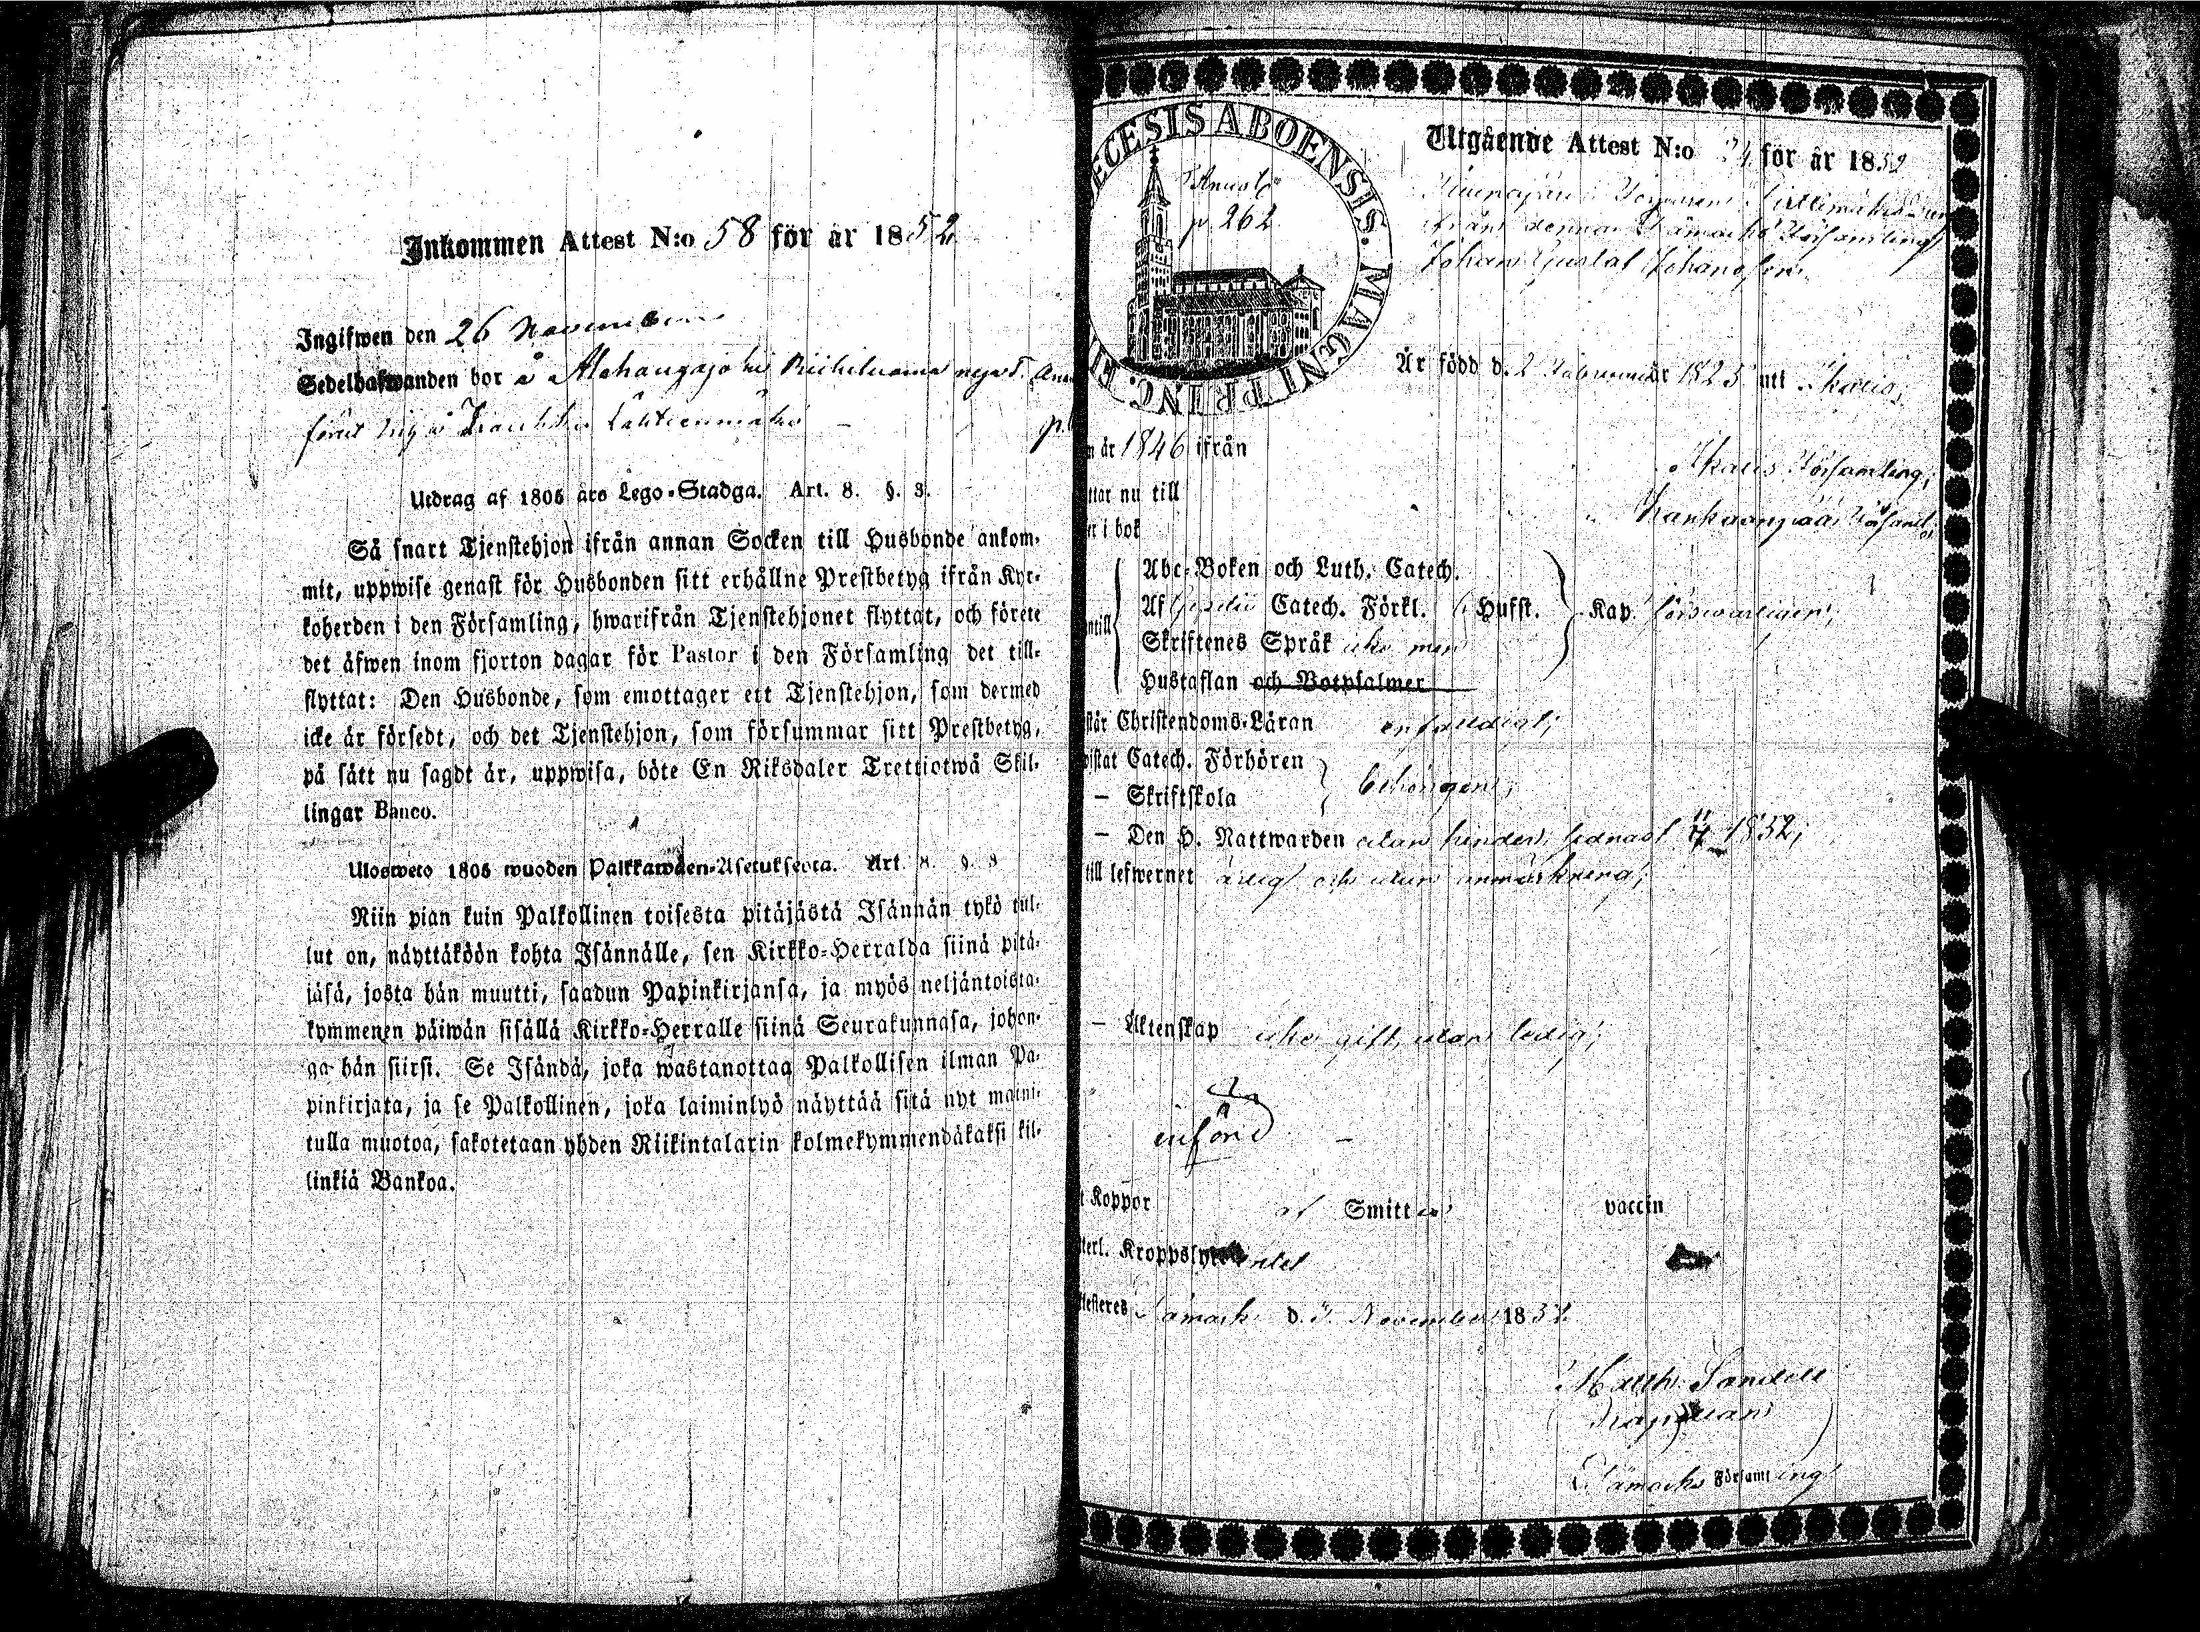 Inkommen Attest N:o 58 för år 1852
Ingifwen den 26 November
Sedelhafwanden bor å Alahongajoki
förut
Utdrag af 1805 års Lego-Stadga. Art. 8. §. 3.
Så snart Tjenstehjon ifrån annan Socken till Husbonde ankom-
mit, uppwise genast för Husbonden sitt erhållne Prestbetyg ifrån Kyr-
koherden i den Församling, hwarifrån Tjenstehjonet flyttat, och förete
det äfwen inom fjorton dagar för Pastor i den Församling det till-
flyttat: Den Husbonde, som emottager ett Tjenstehjon, som dermed
icke är försedt, och det Tjenstehjon, som försummar sitt Prestbetyg,
på sätt nu sagdt är, uppwisa, böte En Riksdaler Trettiotwå Skil-
lingar Banco.
Ulosweto 1805 wuoden Palkkawäen-Asetuksesta. Art. 8. §. 3
Niin pian kuin Palkollinen toisesta pitäjästä Isännän tykö tul-
lut on, näyttäköön kohta Isännälle, sen Kirkko-Herralda siinä pitä-
jäsä, josta hän muutti, saadun Papinkirjansa, ja myös neljäntoista-
kymmenen päiwän sisällä Kirkko-Herralle siinä Seurakunnasa, johon-
ga hän siirsi. Se Isändä, joka wastanottaa Palkollisen ilman Pa-
pinkirjata, ja se Palkollinen, joka laiminlyö näyttää sitä nyt maini-
tulla muotoa, sakotetaan yhden Riikintalarin kolmekymmendäkaksi kil-
linkiä Bankoa.
ECESIS ABOENSIS. MAGNI PRINC. FIN
p. 262
Utgående Attest N:o 24 för år 1852
ifrån denna Tämoiks Församling
Johan Gustaf Johansson
Är född d. 2 Februari 1825 uti Ikalis;
n år 1846 ifrån
Ikalis Församling;
ttar nu till
Kankaanpää Församl:
er i bok
Abc-Boken och Luth. Catech.
Af Catech. Förkl. Hufst. Kap. försvarligen;
ntill
Skriftenes Språk icke men
Hustaflan och Botpsalmer
står Christendoms-Läran enfaldigt;
vistat Catech. Förhören
behörigen;
– Skriftskola
– Den H. Nattwarden utan hinder, sednast 1852;
till lefwernet ärlig och utan anmärkning;
– Äktenskap icke gift, utan ledig;
införd
t Koppor af Smitta vaccin
tterl. Kroppslyte intet
ttesteres d. November 1852.
Matth. Sandell
Kapellan
Församling